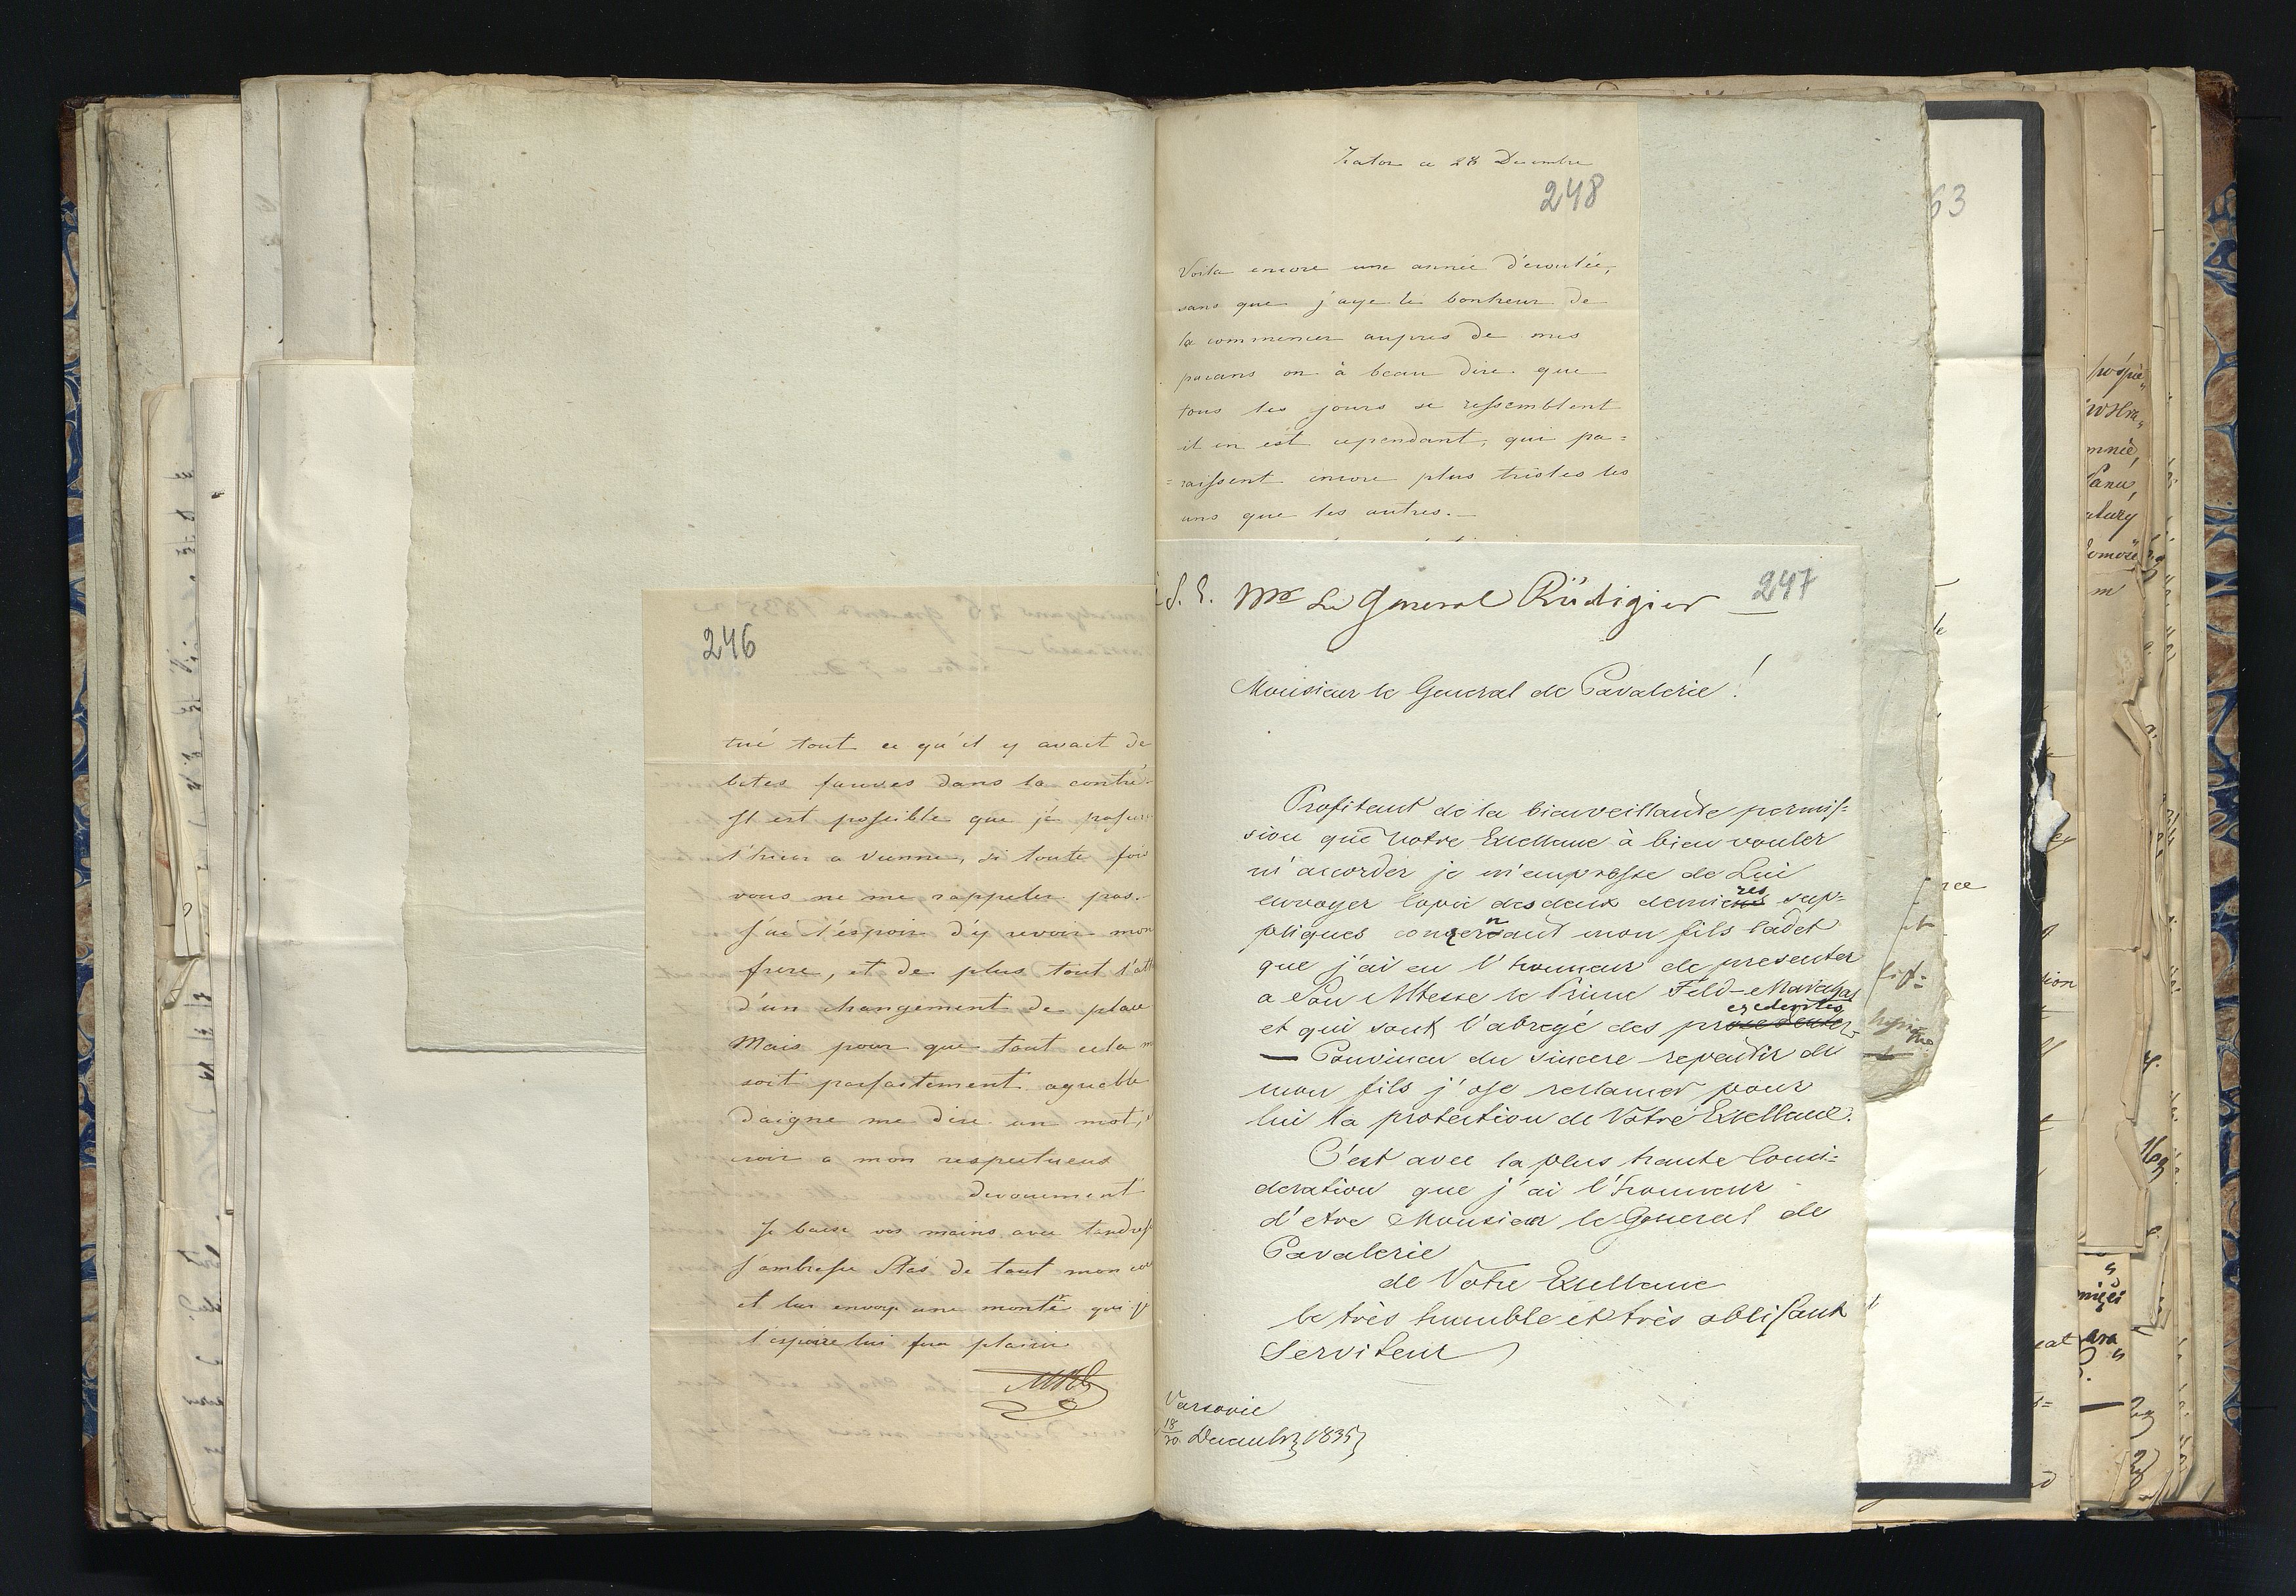 246
tué tout ce qu'il y avait de
betes fauves dans la contré
Il est possible que je passe
l'hiver a Vienne, si toute fois
vous ne me rappeler pas.
J'ai l'éspoir d'y revoir mon
frere, et de plus tout l'att
d'un changement de place
Mais pour que tout cela m
soit parfaitement agreable
daigne me dire un mot,
croir a mon respectueus
devouement
Je baise vos mains avec tendress
J'ambrasse Stas de tout mon coe
et lui envoye une montre qui je
l'espoire lui fera plaisir
Zator ce 28 Decembre
248
Voila encore une année d'ecoulée,
sans que j'aye le bonheur de
la commencer aupres de mes
parans on à beau dire que
tous les jours se ressemblent
il en est cependant, qui pa=
=raissent encore plus tristes les
uns que les autres.—
S. E. Mr Le General Rüdigier
247
Monsieur le General de Cavalerie!
Profitant de la bienveillante permis=
sion que Votre Exellence à bien vouler
m'accorder je m'empresse de Lui
envoyer Copie des deux dernieres sup=
pliques concernant mon fils Cadet
que j'ai eu l'honneur de presenter
a Son Altesse le Prince Feld-Marechal
et qui sont l'abregé des precedentes
— Convincu du sincere repentir de
mon fils j'ose reclamer pour
lui la protection de Votre Exellence.
C'est avec la plus haute Consi=
deration que j'ai l'honneur
d'etre Monsieur le General de
Cavalerie
de Votre Exellence
le très humble et très obligant
Serviteur
Varsovie
18/30 Decembr 1835
63